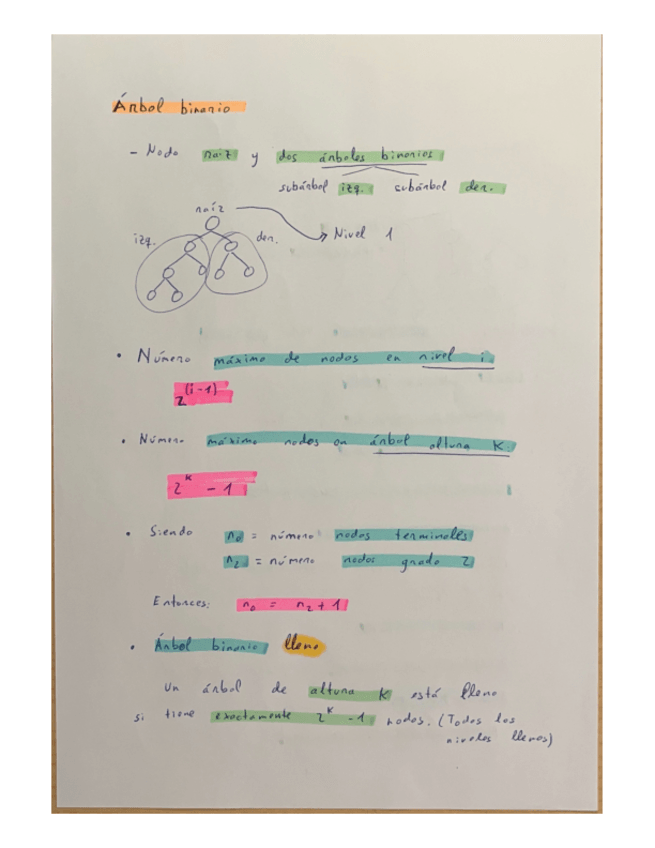 Árbol binario
- Nodo raíz y dos árboles binarios
subárbol izq. subárbol der.
raíz
izq. der. Nivel 1
• Número máximo de nodos en nivel i.
2^(i-1)
• Número máximo nodos en árbol altura K.
2^K - 1
• Siendo n₀ = número nodos terminales
n₂ = número nodos grado 2
Entonces: n₀ = n₂ + 1
• Árbol binario lleno
Un árbol de altura K está lleno
si tiene exactamente 2^K - 1 nodos. (Todos los
niveles llenos)